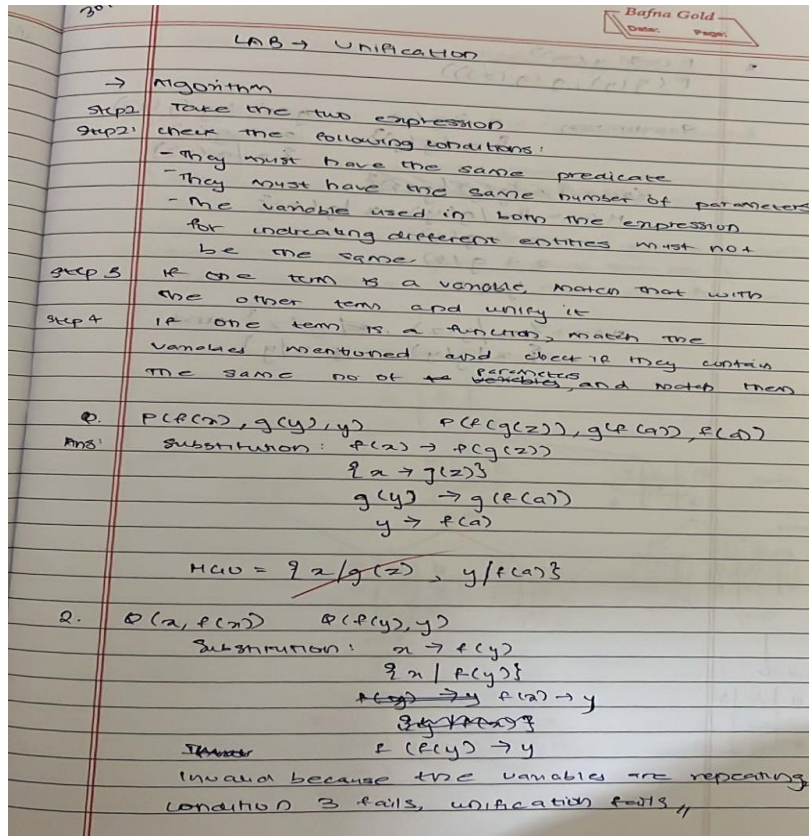 30
Bafna Gold
Date: Page:
LAB → Unification
→ Algorithm
Step2 Take the two expression
Step2: check the following conditions:
- They must have the same predicate
- They must have the same number of parameters
- The variable used in both the expression
for indicating different entities must not
be the same.
Step 3 If one term is a variable, match that with
the other term and unify it
Step 4 If one term is a function, match the
variables mentioned and check if they contain
the same no of parameters, and match them
Q. P(f(x), g(y), y) P(f(g(z)), g(f(a)), f(a))
Ans: Substitution: f(x) → f(g(z))
{x → g(z)}
g(y) → g(f(a))
y → f(a)
MGU = {x/g(z), y/f(a)}
2. Q(x, f(x)) Q(f(y), y)
Substitution: x → f(y)
{x | f(y)}
f(x) → y
f(f(y)) → y
Invalid because the variables are repeating,
condition 3 fails, unification fails,,